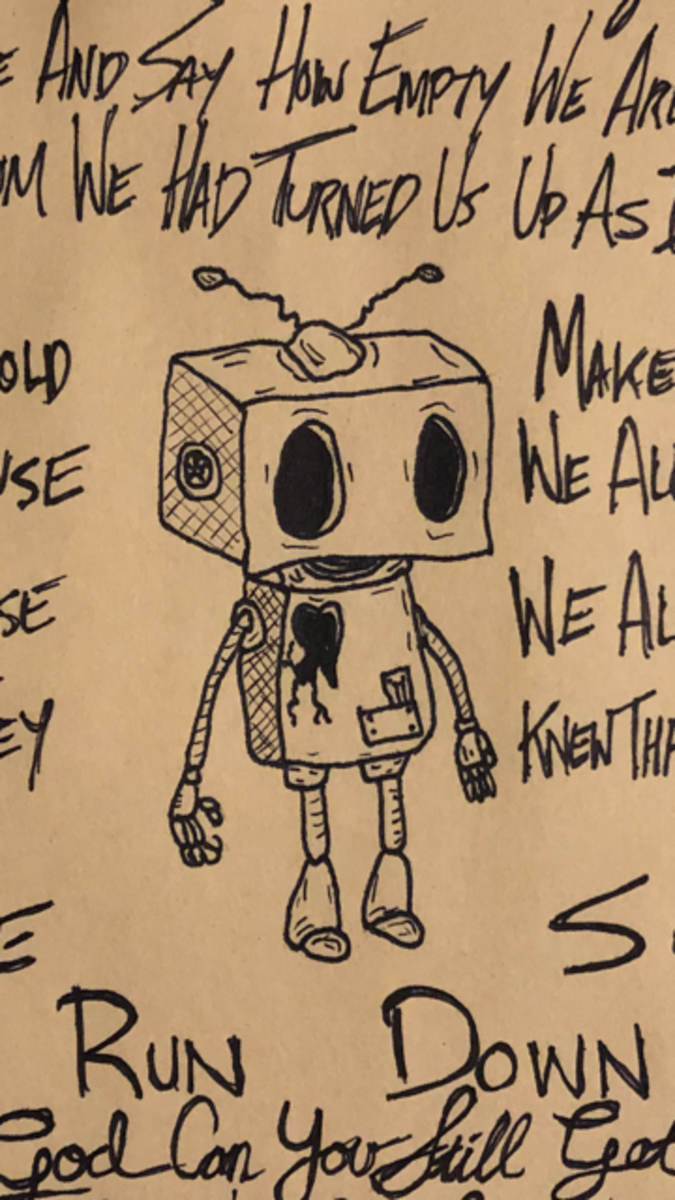 E AND SAY HOW EMPTY WE ARE
OM WE HAD TURNED US UP AS
OLD MAKE
USE WE AL
SE WE AL
EY KNEW THA
E S
RUN DOWN
God Can You Still Get